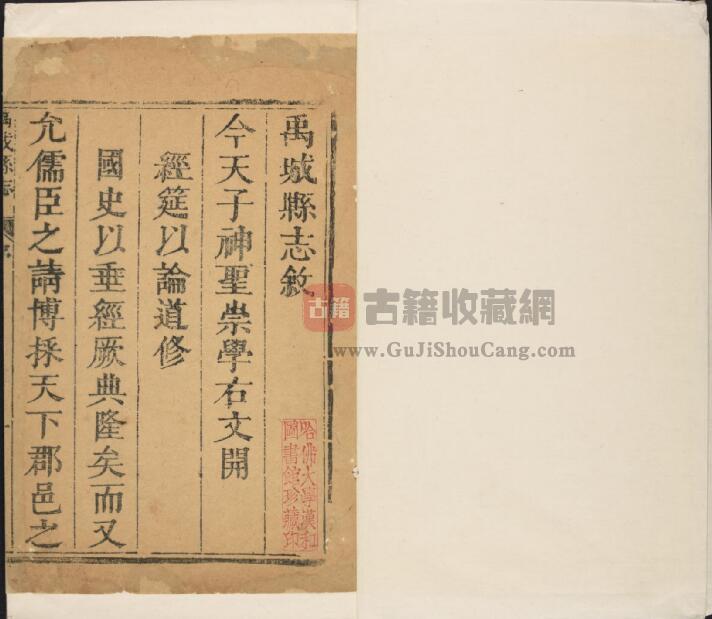 禹城縣志敘
今天子神聖崇學右文開
經筵以論道修
國史以垂經厥典隆矣而又
允儒臣之請博採天下郡邑之
禹城縣志
哈佛大學漢和
圖書館珍藏印
古籍
古籍收藏網
www.GuJiShouCang.com